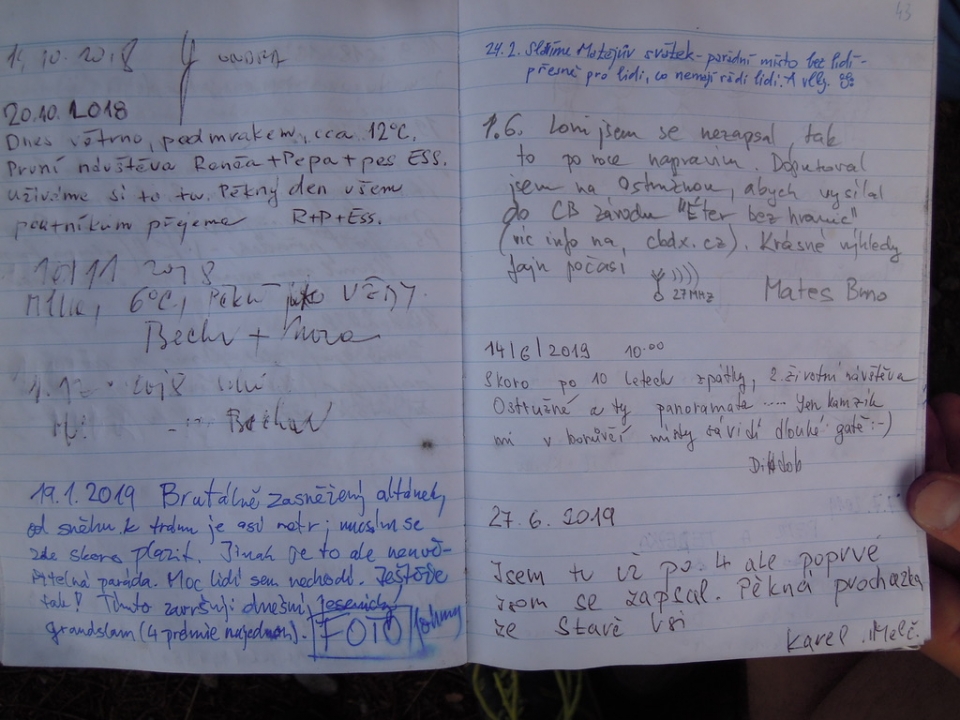 14.10.2018 ONDRA
20.10.2018
Dnes větrno, podmrakem, cca 12°C.
První návštěva Renča + Pepa + pes ESS.
Užíváme si to tu. Pěkný den všem
poutníkum přejeme R+P+Ess.
10/11 2018
Mlha, 6°C, Pěkně jako vždy.
2018
19.1.2019 Brutálně zasněžený altánek,
od sněhu k trámu je asi metr; musím se
zde skoro plazit. Jinak je to ale neuvě-
řitelná paráda. Moc lidí sem nechodí. Ještěže
tak! Tímto završuji dnešní jesenický
grandslam (4 prémie najednou). FOTO
43
24.2. Slavíme Matějův svátek - parádní místo bez lidí -
přesně pro lidi, co nemají rádi lidi.
1.6. Loni jsem se nezapsal, tak
to po roce napravím. Doputoval
jsem na Ostružnou, abych vysílal
do CB závodu "Éter bez hranic"
(víc info na, cbdx.cz). Krásné výhledy
fajn počasí
27 MHz Mates Brno
14/6/2019 10.00
Skoro po 10 letech zpátky, 2. životní návštěva
Ostružné a ty panoramata ..... Jen kamzík
mi v borůvčí místy závidí dlouhé gatě :-)
27.6. 2019
Jsem tu už po. 4 ale poprvé
jsom se zapsal. Pěkná procházka
ze Staré Vsi
Karel